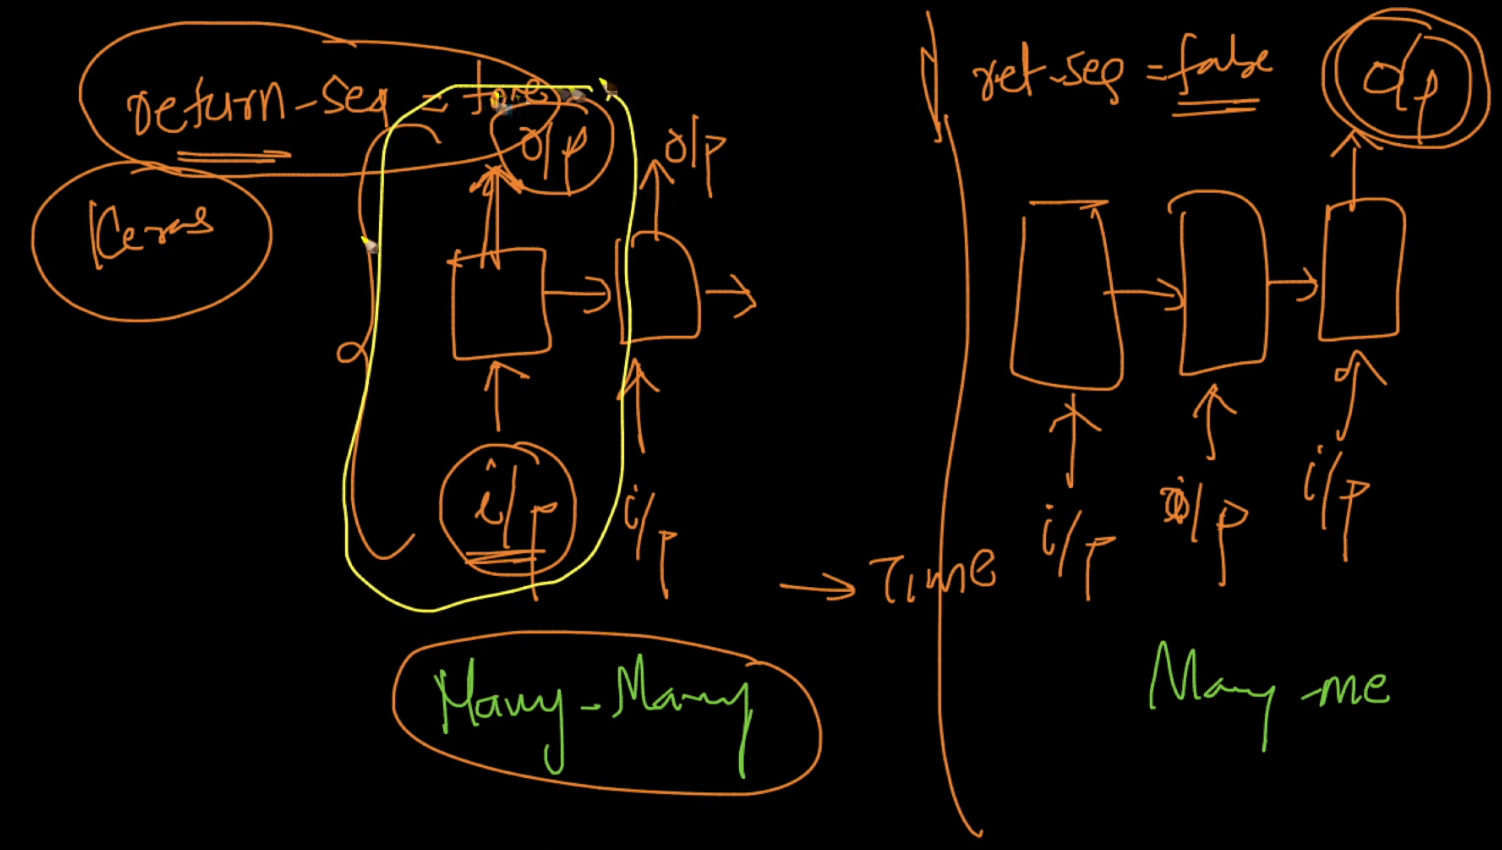 return-seq = true
Keras
o/p
o/p
i/p
i/p
→ Time
Many-Many
ret-seq = false
o/p
i/p
i/p
i/p
Many-one